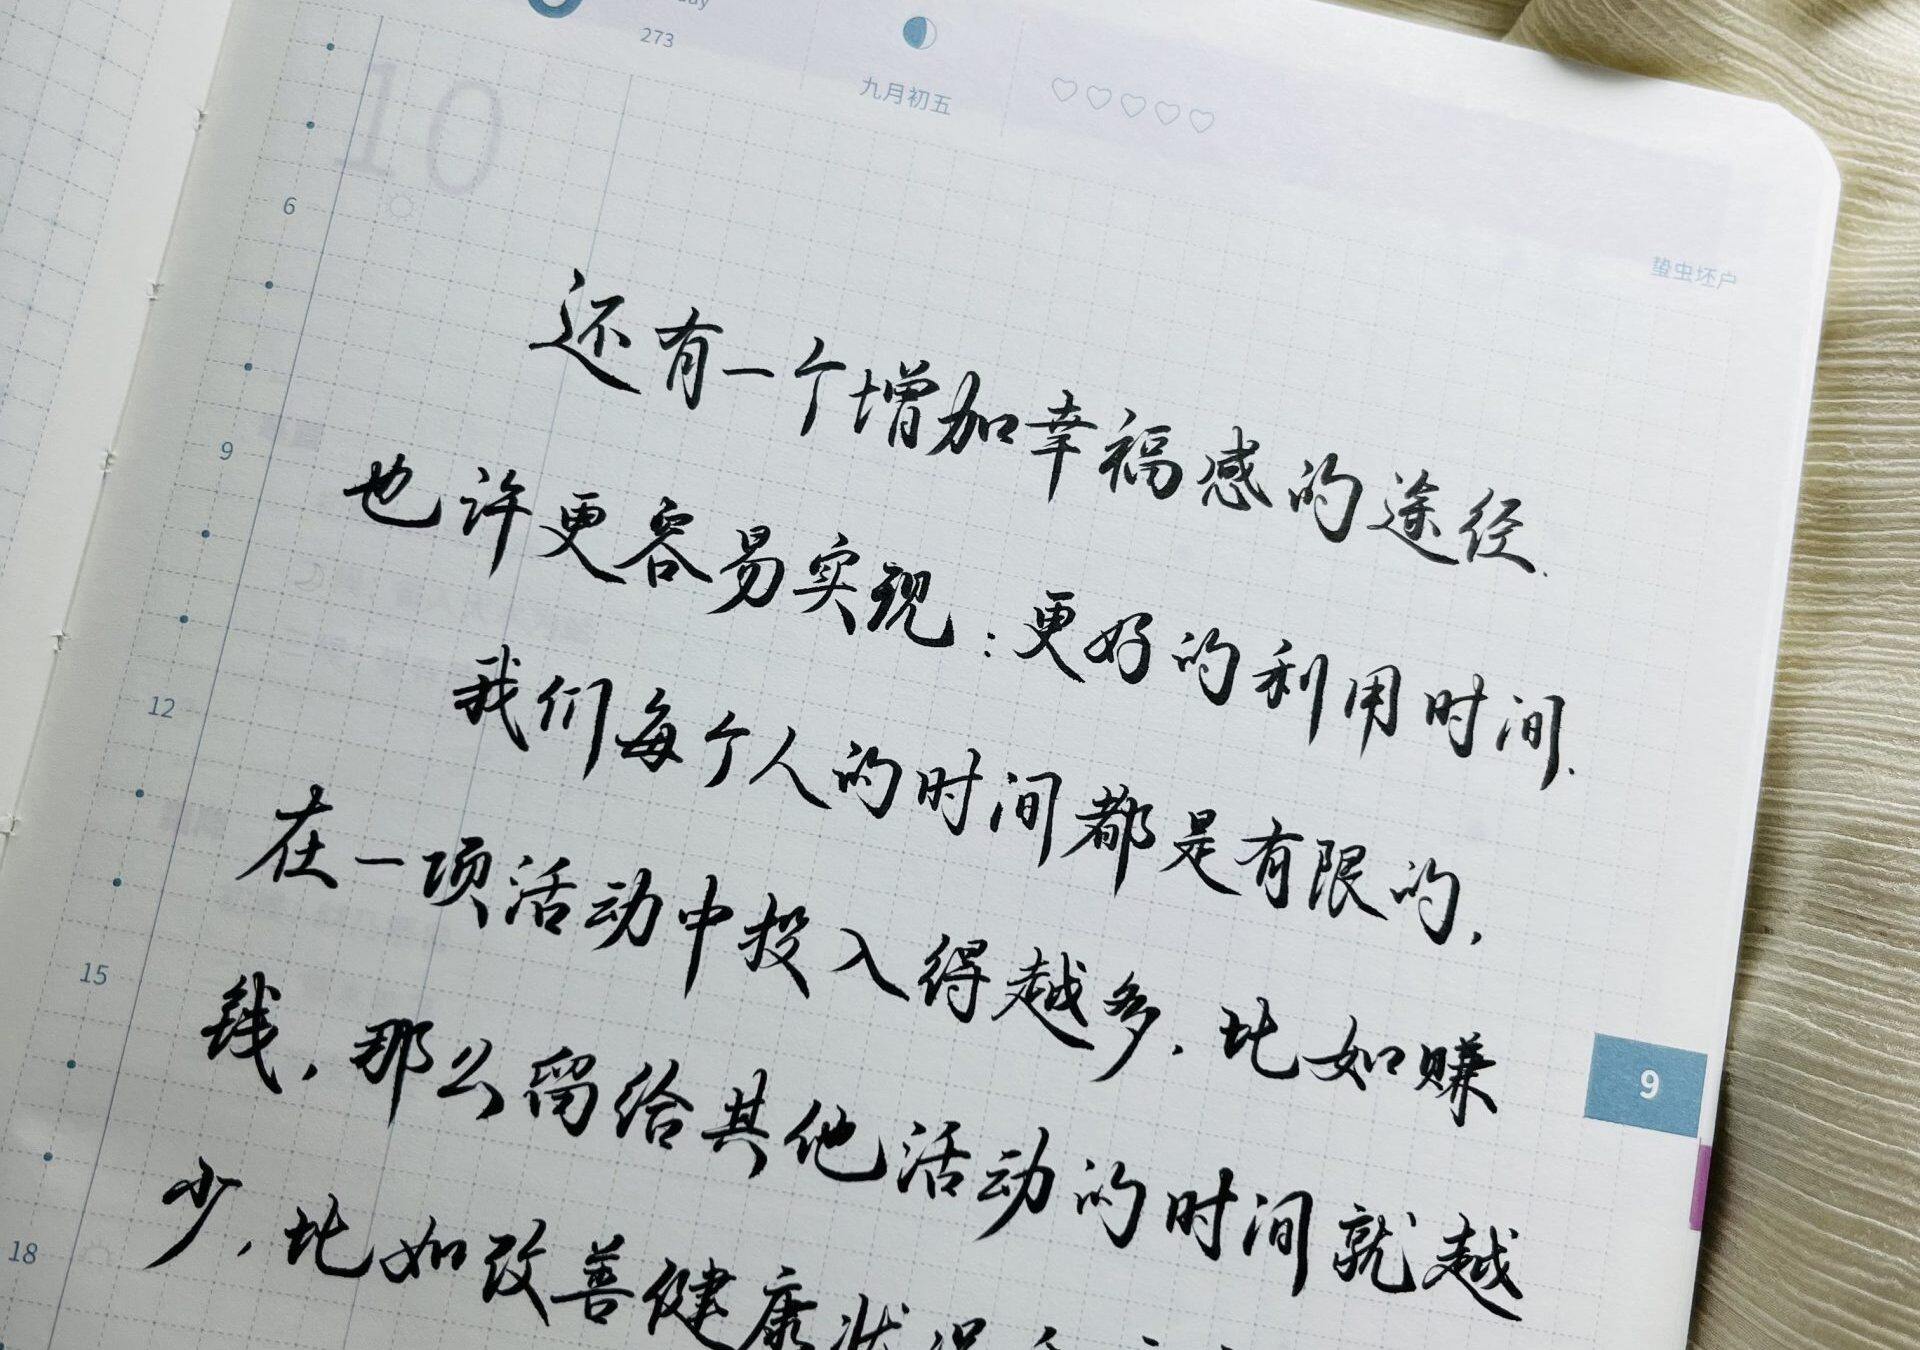 273
九月初五
蛰虫坯户
10
6
还有一个增加幸福感的途径.
9
也许更容易实现:更好的利用时间.
12
我们每个人的时间都是有限的,
在一项活动中投入得越多,比如赚
15
钱,那么留给其他活动的时间就越
9
少,比如改善健康状况
18